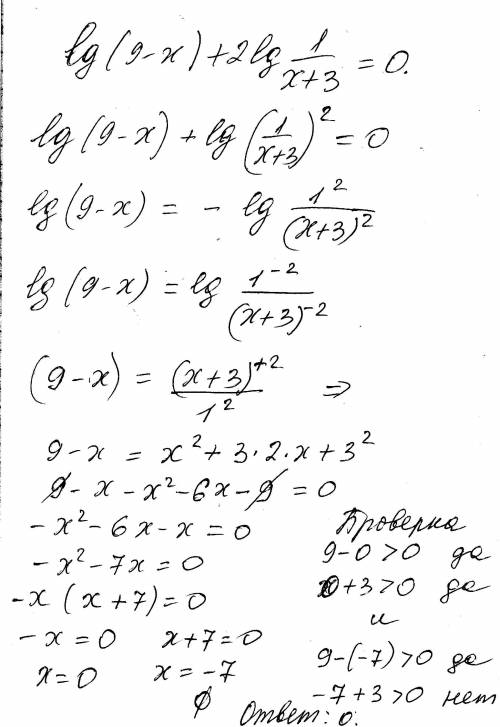 lg(9-x)+2lg 1/(x+3) = 0.
lg(9-x) + lg(1/(x+3))² = 0
lg(9-x) = - lg 1²/(x+3)²
lg(9-x) = lg 1⁻²/(x+3)⁻²
(9-x) = (x+3)⁺²/1² ⇒
9-x = x²+3·2·x+3²
9-x-x²-6x-9 = 0
-x²-6x-x=0
-x²-7x=0
-x(x+7)=0
-x=0 x+7=0
x=0 x=-7
∅
Проверка
9-0>0 да
0+3>0 да
и
9-(-7)>0 да
-7+3>0 нет
Ответ: 0.